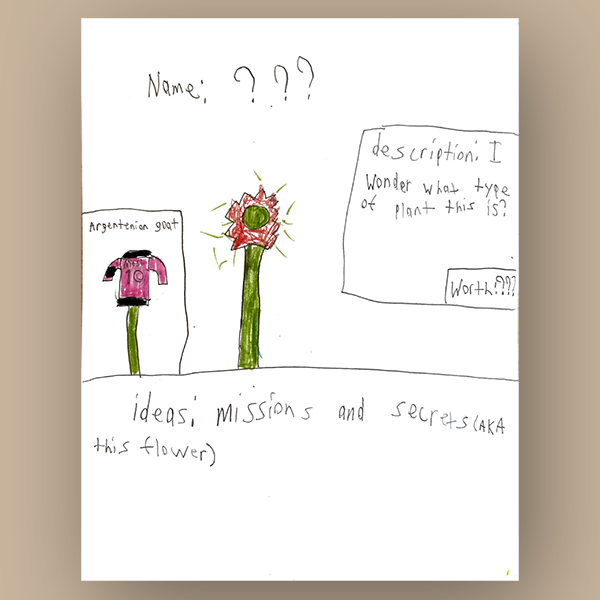 Name: ???
description: I
Wonder what type
of plant this is?
Worth:???
Argentenion goat
10
ideas: missions and secrets (AKA
this flower)